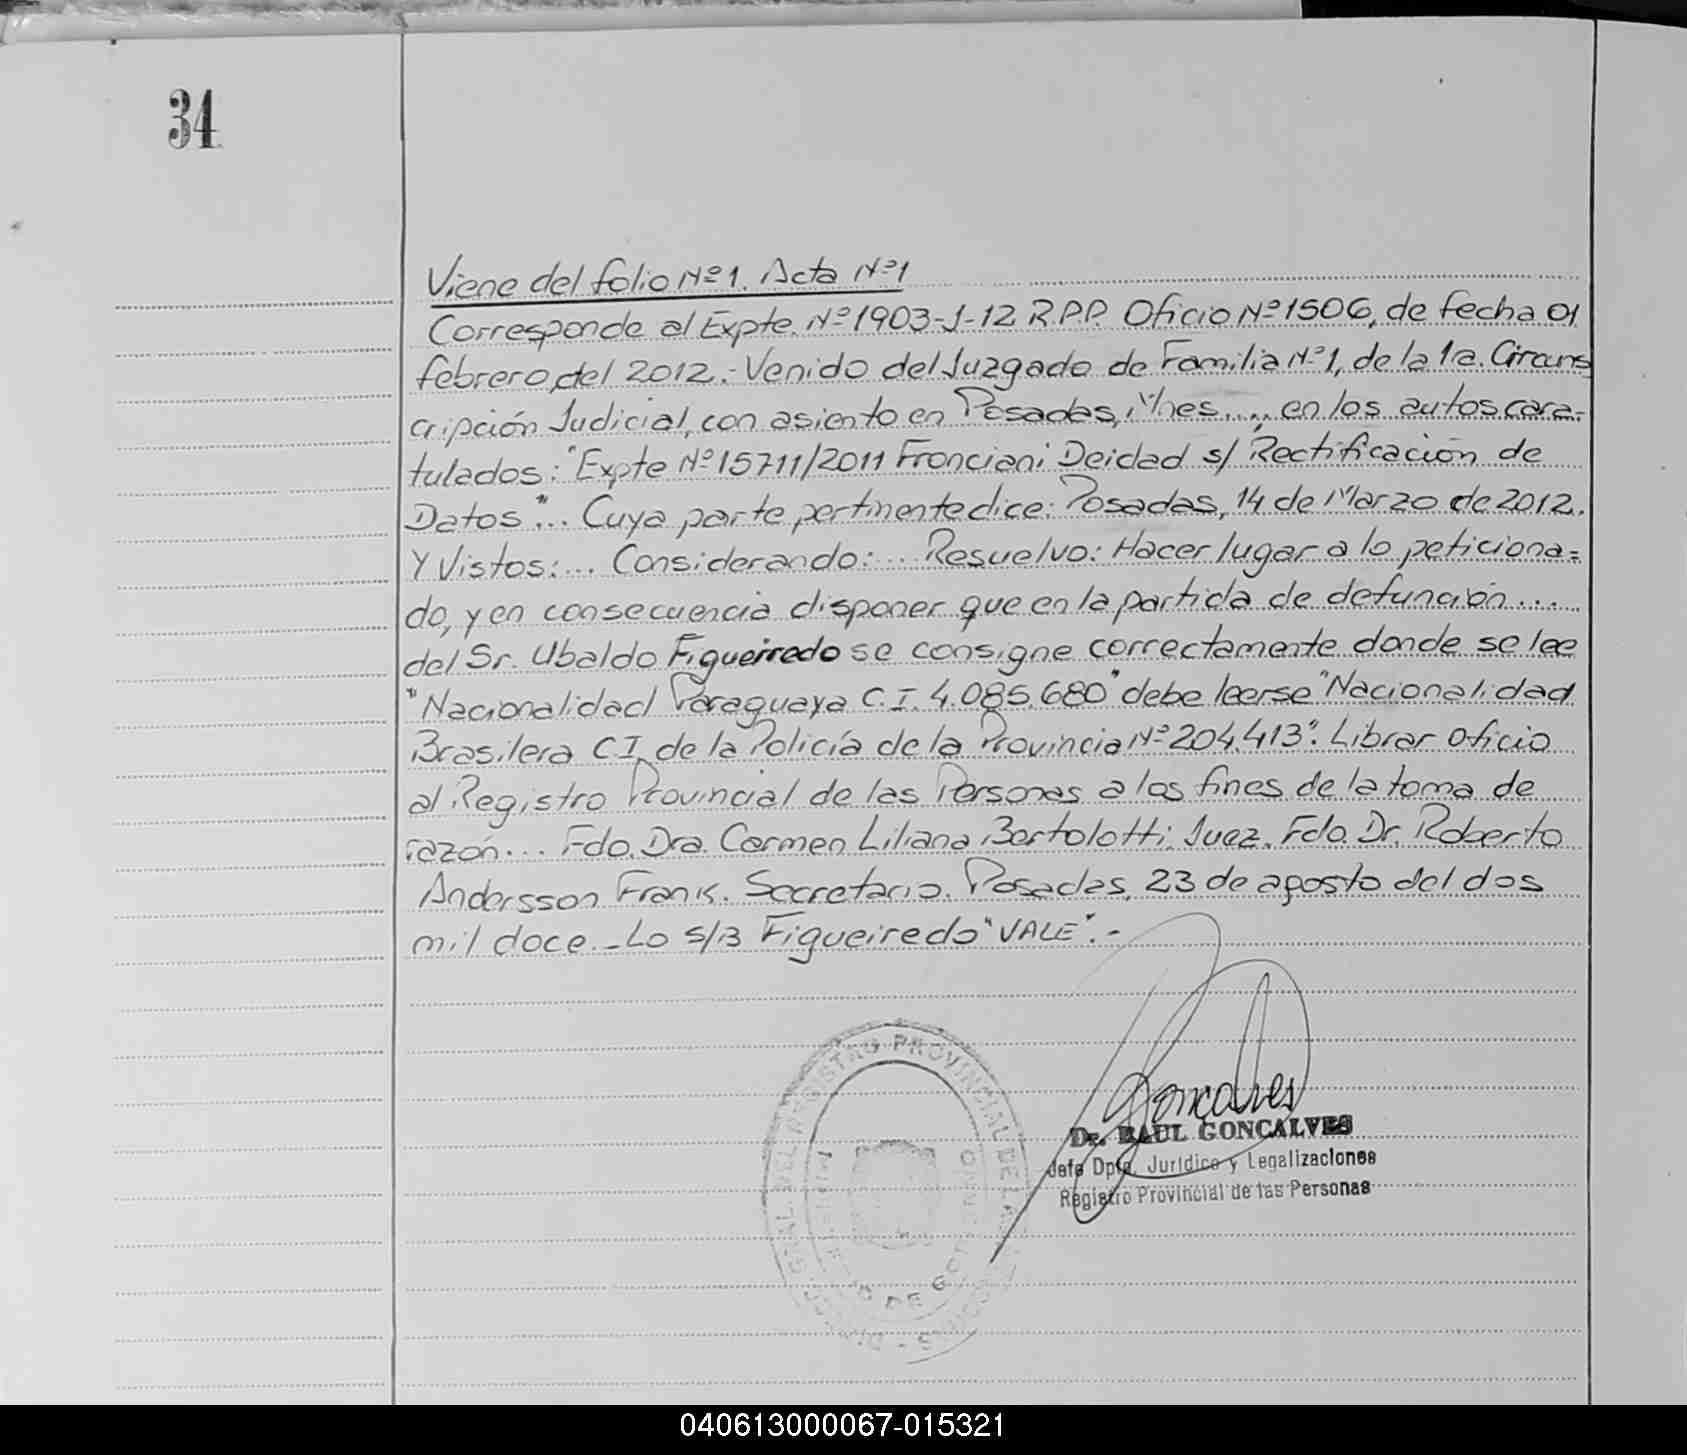 34
Viene del folio Nº 1. Acta Nº 1
Corresponde al Expte. Nº 1903-J-12 R.P.P. Oficio Nº 1506, de fecha 01
febrero, del 2012.- Venido del Juzgado de Familia Nº 1, de la 1ra. Circuns
cripción Judicial, con asiento en Posadas, Mnes..., en los autos cara-
tulados: "Expte Nº 15711/2011 Franciani Deidad s/ Rectificación de
Datos"... Cuya parte pertinente dice: Posadas, 14 de Marzo de 2012.
Y Vistos:... Considerando:... Resuelvo: Hacer lugar a lo peticiona=
do, y en consecuencia disponer que en la partida de defunción...
del Sr. Ubaldo Figueiredo se consigne correctamente donde se lee
"Nacionalidad Paraguaya C.I. 4.085.680" debe leerse "Nacionalidad
Brasilera C.I. de la Policía de la Provincia Nº 204.413". Librar oficio
al Registro Provincial de las Personas a los fines de la toma de
razón... Fdo. Dra. Carmen Liliana Bertolotti. Juez. Fdo. Dr. Roberto
Andersson Frank. Secretario. Posadas, 23 de agosto del dos
mil doce.- Lo s/B Figueiredo "VALE".-
Goncalves
Dr. RAUL GONCALVES
Jefe Dpto. Jurídico y Legalizaciones
Registro Provincial de las Personas
REGISTRO PROVINCIAL DE LAS
DE GOBIERNO
040613000067-015321